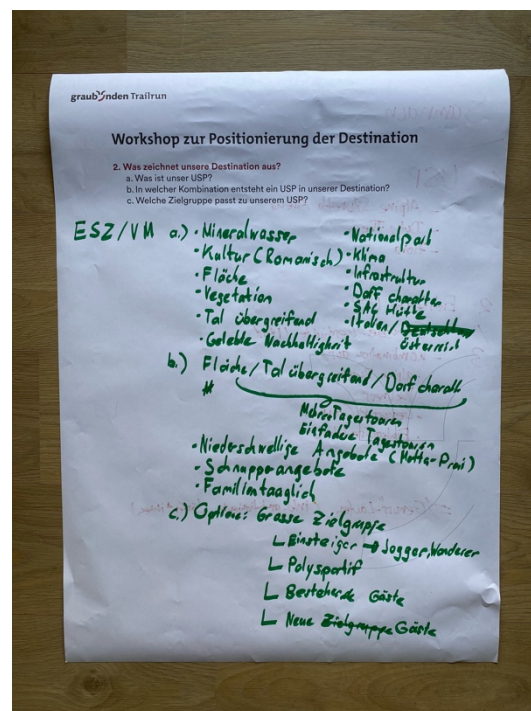 graubünden Trailrun
Workshop zur Positionierung der Destination
2. Was zeichnet unsere Destination aus?
a. Was ist unser USP?
b. In welcher Kombination entsteht ein USP in unserer Destination?
c. Welche Zielgruppe passt zu unserem USP?
ESZ/VM a.) • Mineralwasser
• Kultur (Romanisch)
• Fläche
• Vegetation
• Tal übergreifend
• Gelebte Nachhaltigkeit
• Nationalpark
• Klima
• Infrastruktur
• Dorf charakter
• SAC Hütte
• Italien/
Österreich
b.) Fläche/Tal übergreifend/Dorf charakt
#
Mehrere Tagestouren
Einfachere Tagestouren
• Niederschwellige Angebote (Motta-Prai)
• Schnupperangebote
• Familientauglich
c.) Optionen: Grosse Zielgruppe
Einsteiger → Jogger, Wanderer
Polysportif
Bestehende Gäste
Neue Zielgruppe Gäste